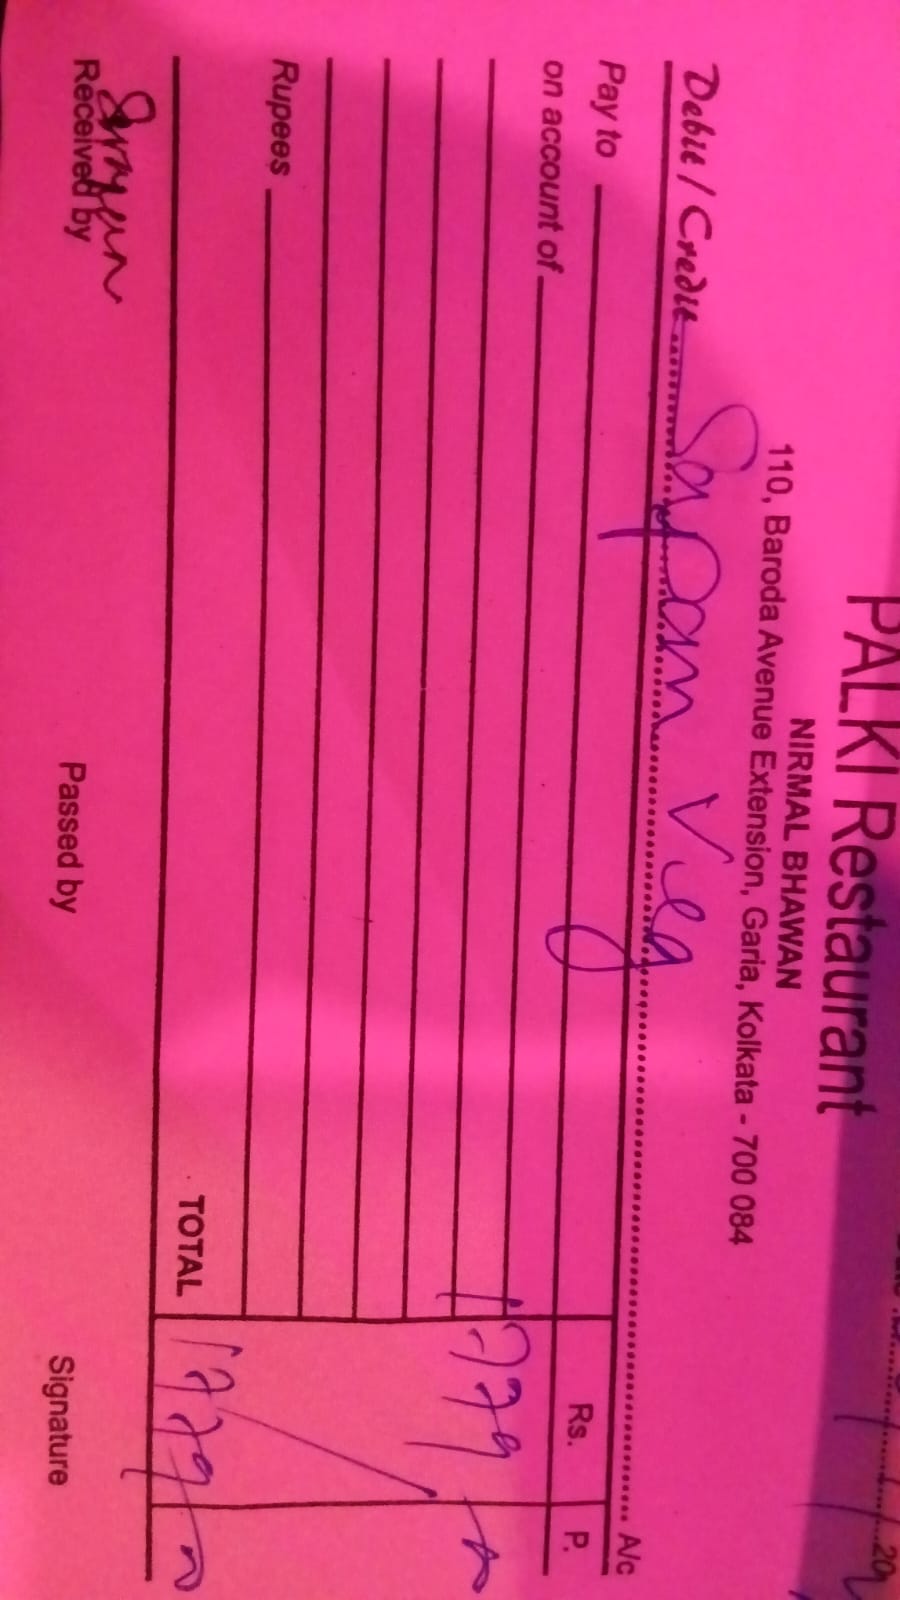 PALKI Restaurant
NIRMAL BHAWAN
110, Baroda Avenue Extension, Garia, Kolkata - 700 084
Debit / Credit Sapan Veg A/c
Pay to Rs. P.
on account of
Rupees
TOTAL
Received by Passed by Signature